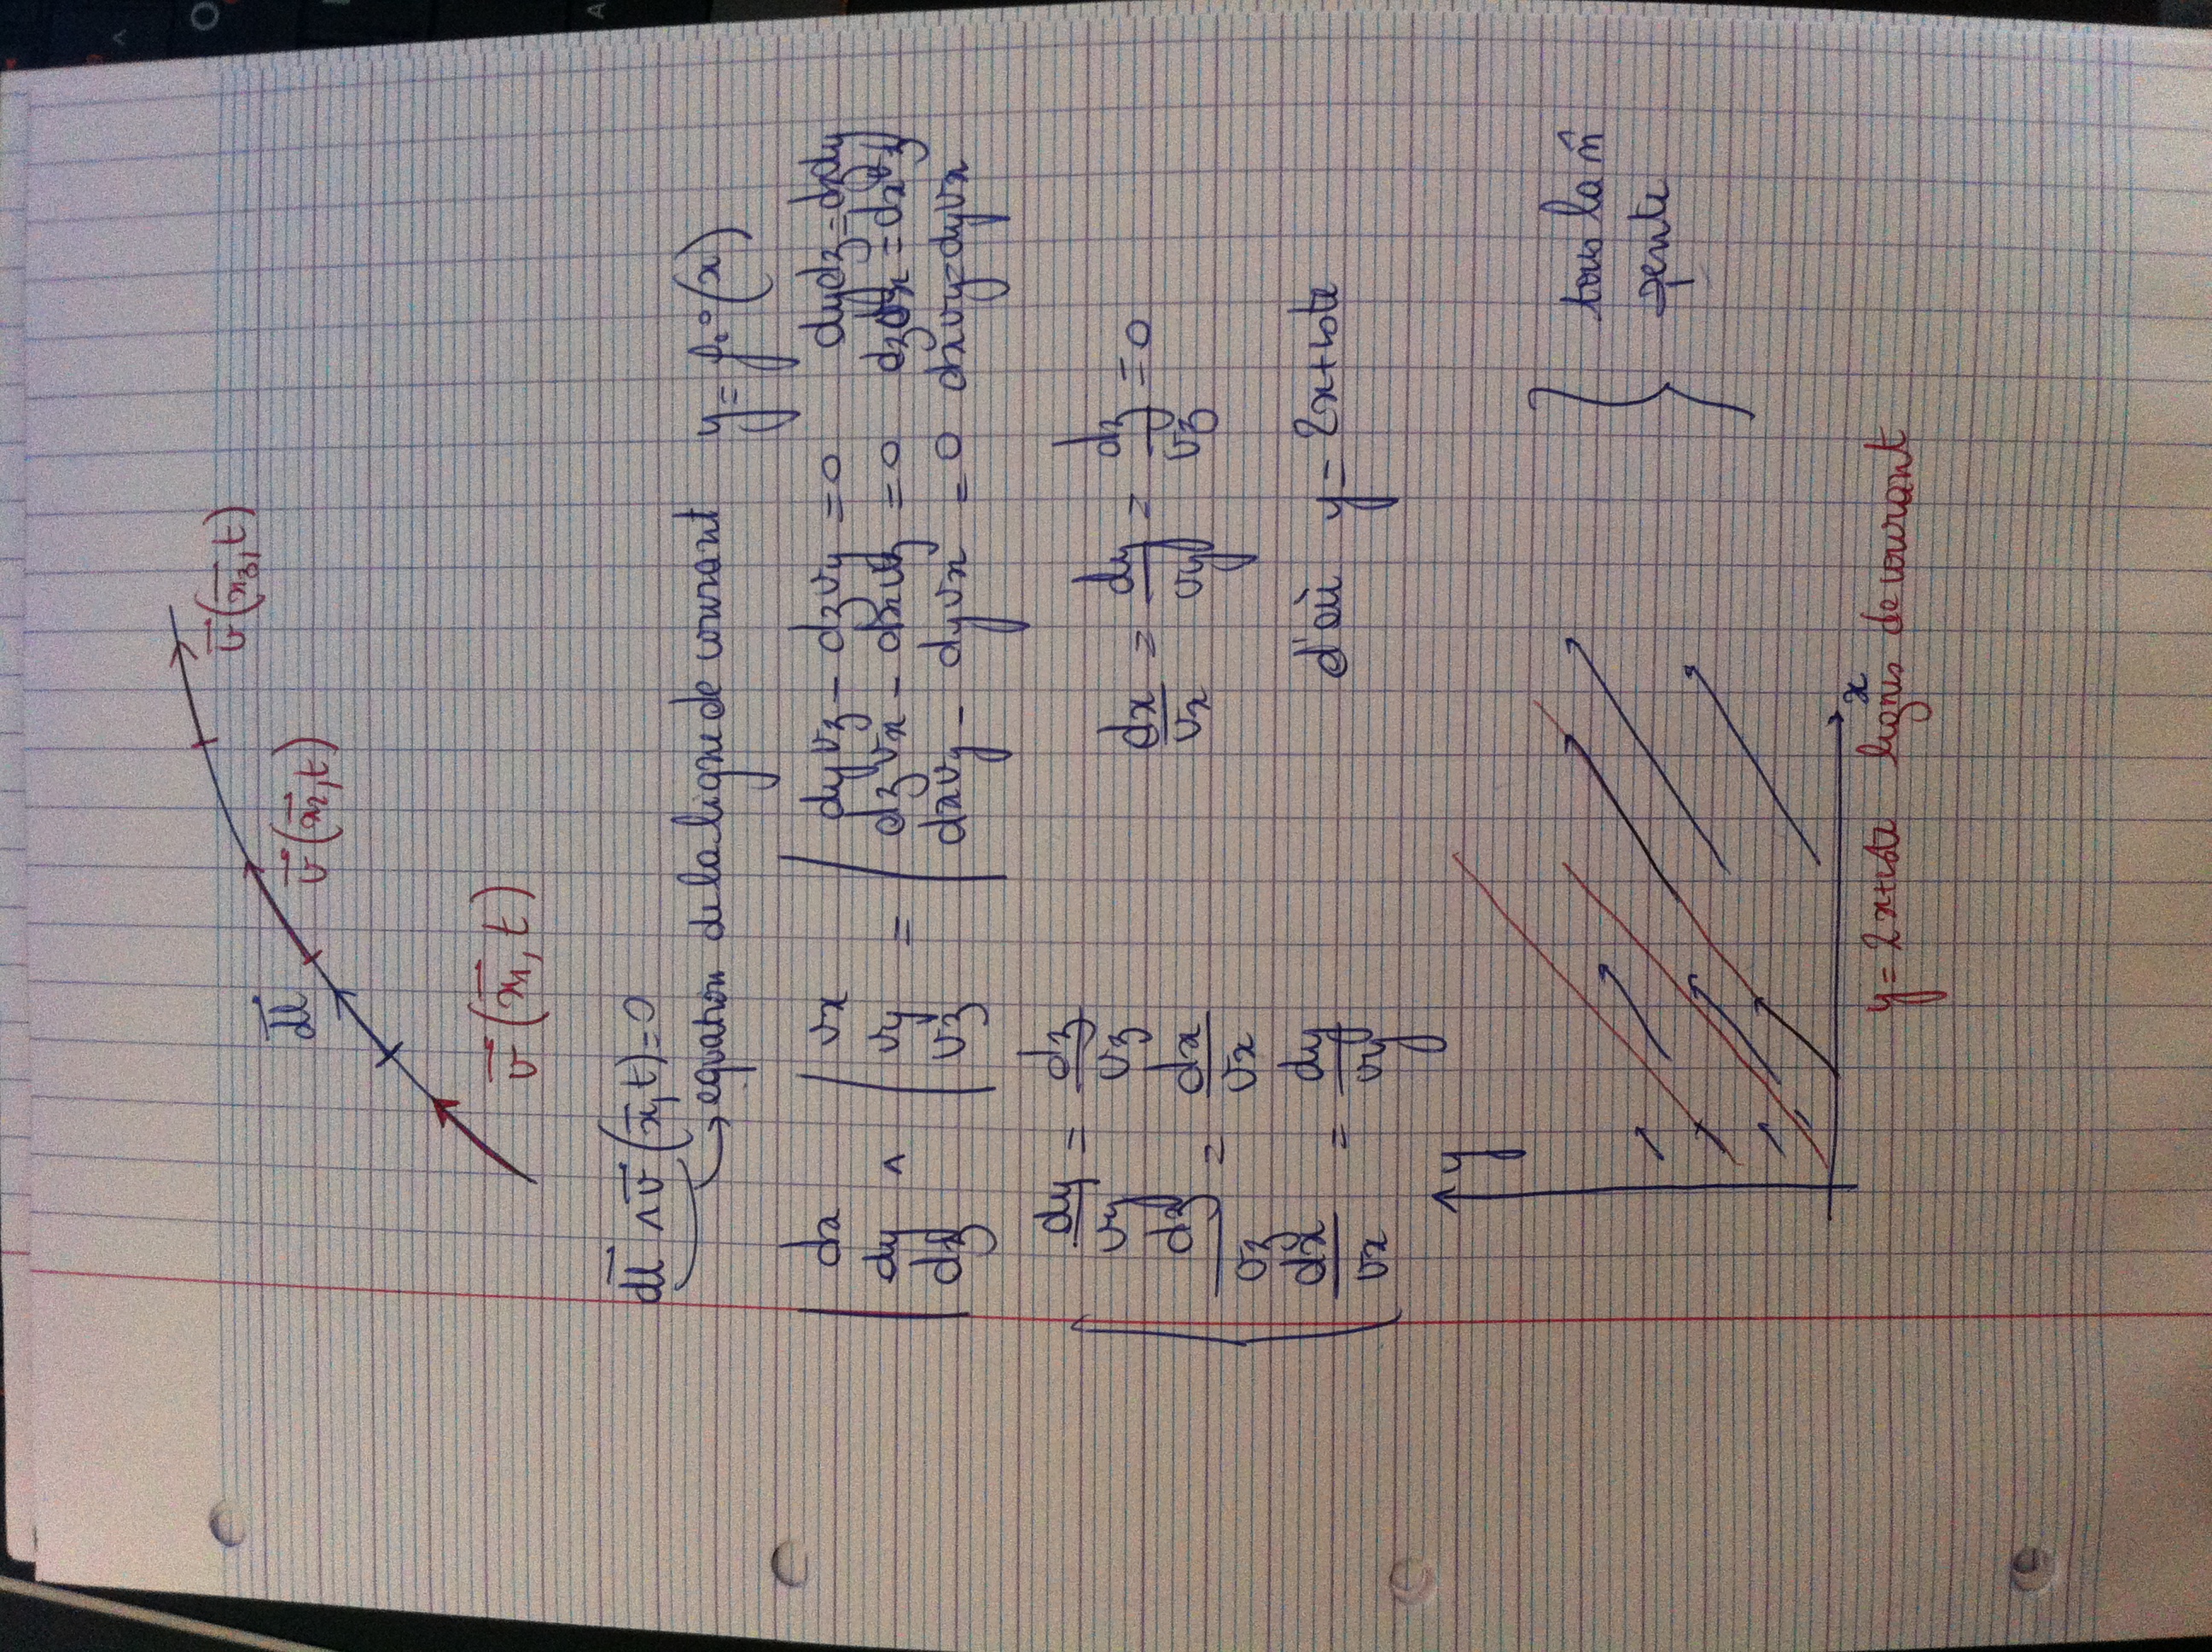 v⃗(x⃗₃, t)
dl⃗
v⃗(x⃗₂, t)
v⃗(x⃗₁, t)
dl⃗ ∧ v⃗(x⃗, t) = 0
equation de la ligne de courant y = f°(x)
dx vx dyvz - dzvy = 0 dydz = dzdy
dy ∧ vy = dzvx - dxvz = 0 dzvx = dxvz
dz vz dxvy - dyvx = 0 dxvy = dyvx
dy/vy = dz/vz
dz/vz = dx/vx
dx/vx = dy/vy
dx/vx = dy/vy = dz/vz = 0
d'où y = 2x + cste
y
tous la m̂
pente
x
y = 2x + cste lignes de courant